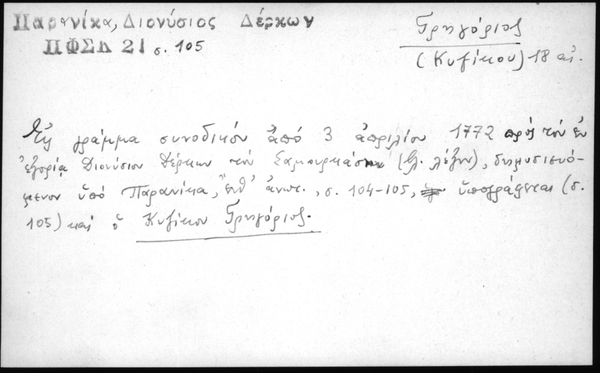 Παρανίκα, Διονύσιος Δέρκων
ΠΦΣΔ 21 σ. 105
Γρηγόριος
(Κυζίκου) 18 αἰ.
Εἰς γράμμα συνοδικόν ἀπό 3 ἀπριλίου 1772 πρός τόν ἐν
ἐξορίᾳ Διονύσιον Δέρκων τόν (βλ. λέξιν), δημοσιευό-
μενον ὑπό Παρανίκα, ἔνθ' ἀνωτ., σ. 104-105, ὑπογράφεται (σ.
105) καί ὁ Κυζίκου Γρηγόριος.